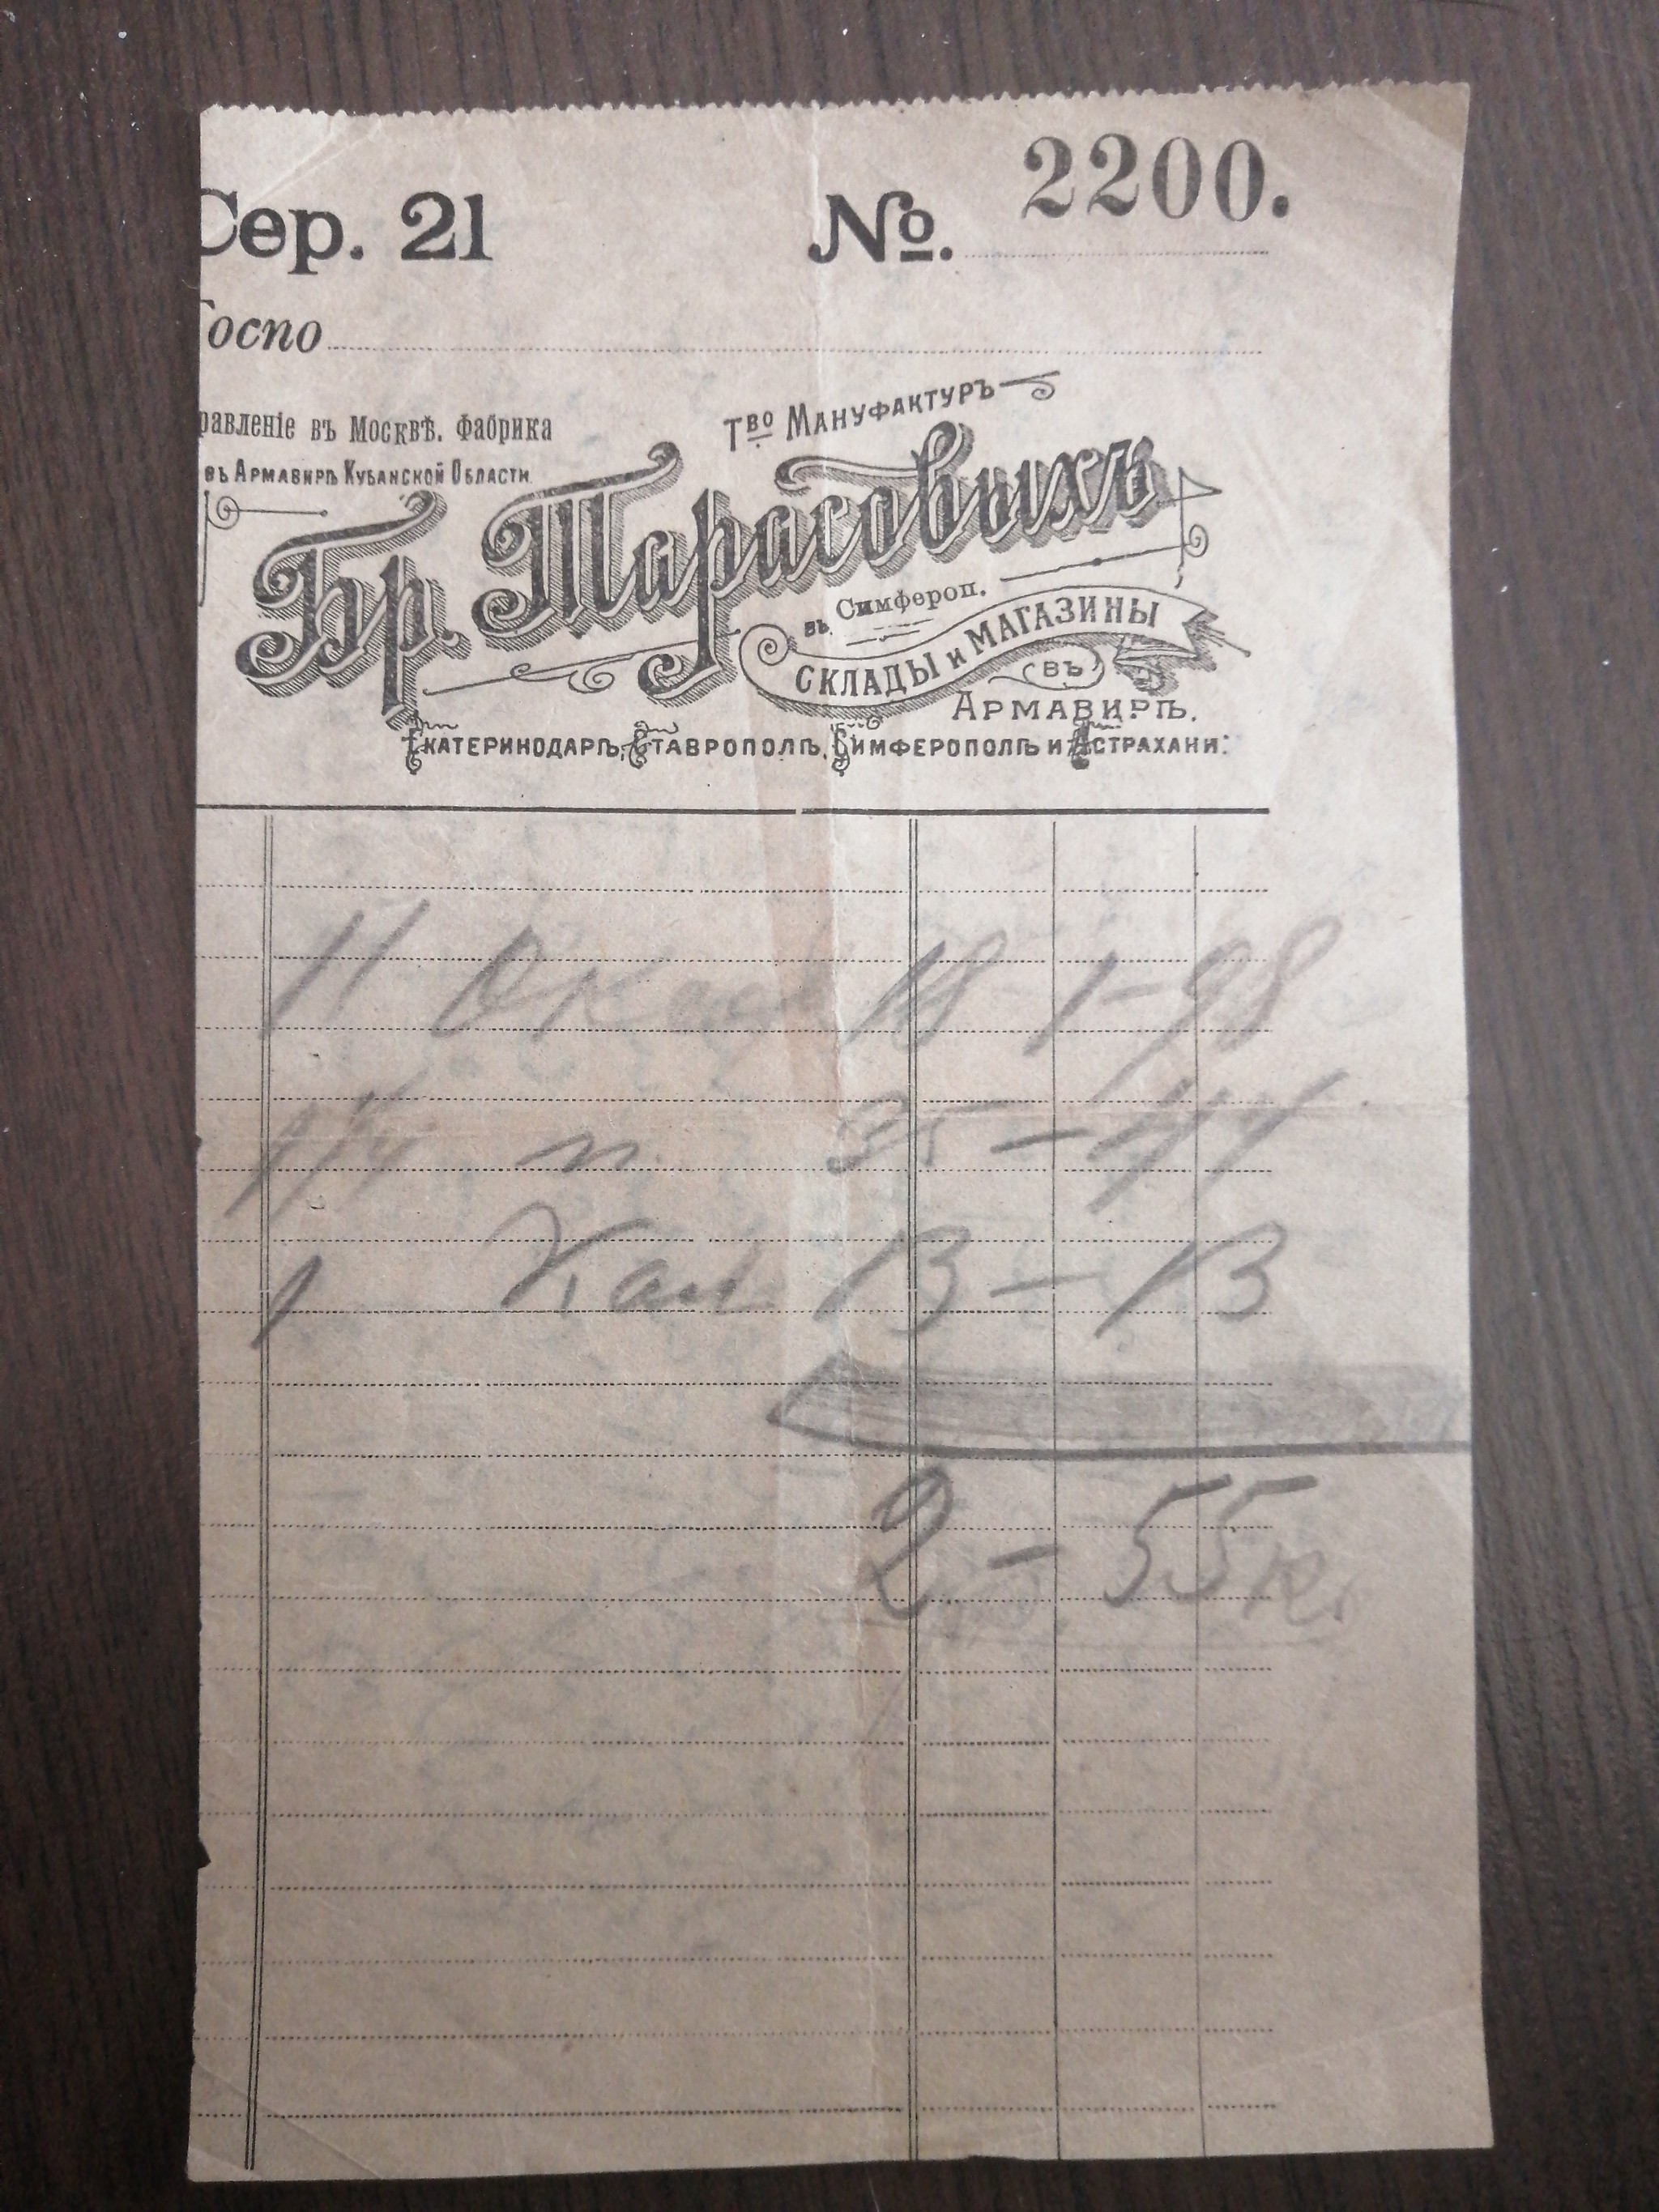 Сер. 21 №. 2200.
Госпо
равленіе въ Москвѣ. Фабрика
въ Армавирѣ Кубанской Области
Тво Мануфактуръ
Бр. Тарасовыхъ
въ Симфероп.
СКЛАДЫ и МАГАЗИНЫ
въ
Армавирѣ,
Екатеринодарѣ, Ставрополѣ, Симферополѣ и Астрахани:
11 18 1-98
1 1/4 п. 35 - 44
1 13 - 13
2 - 55 к.